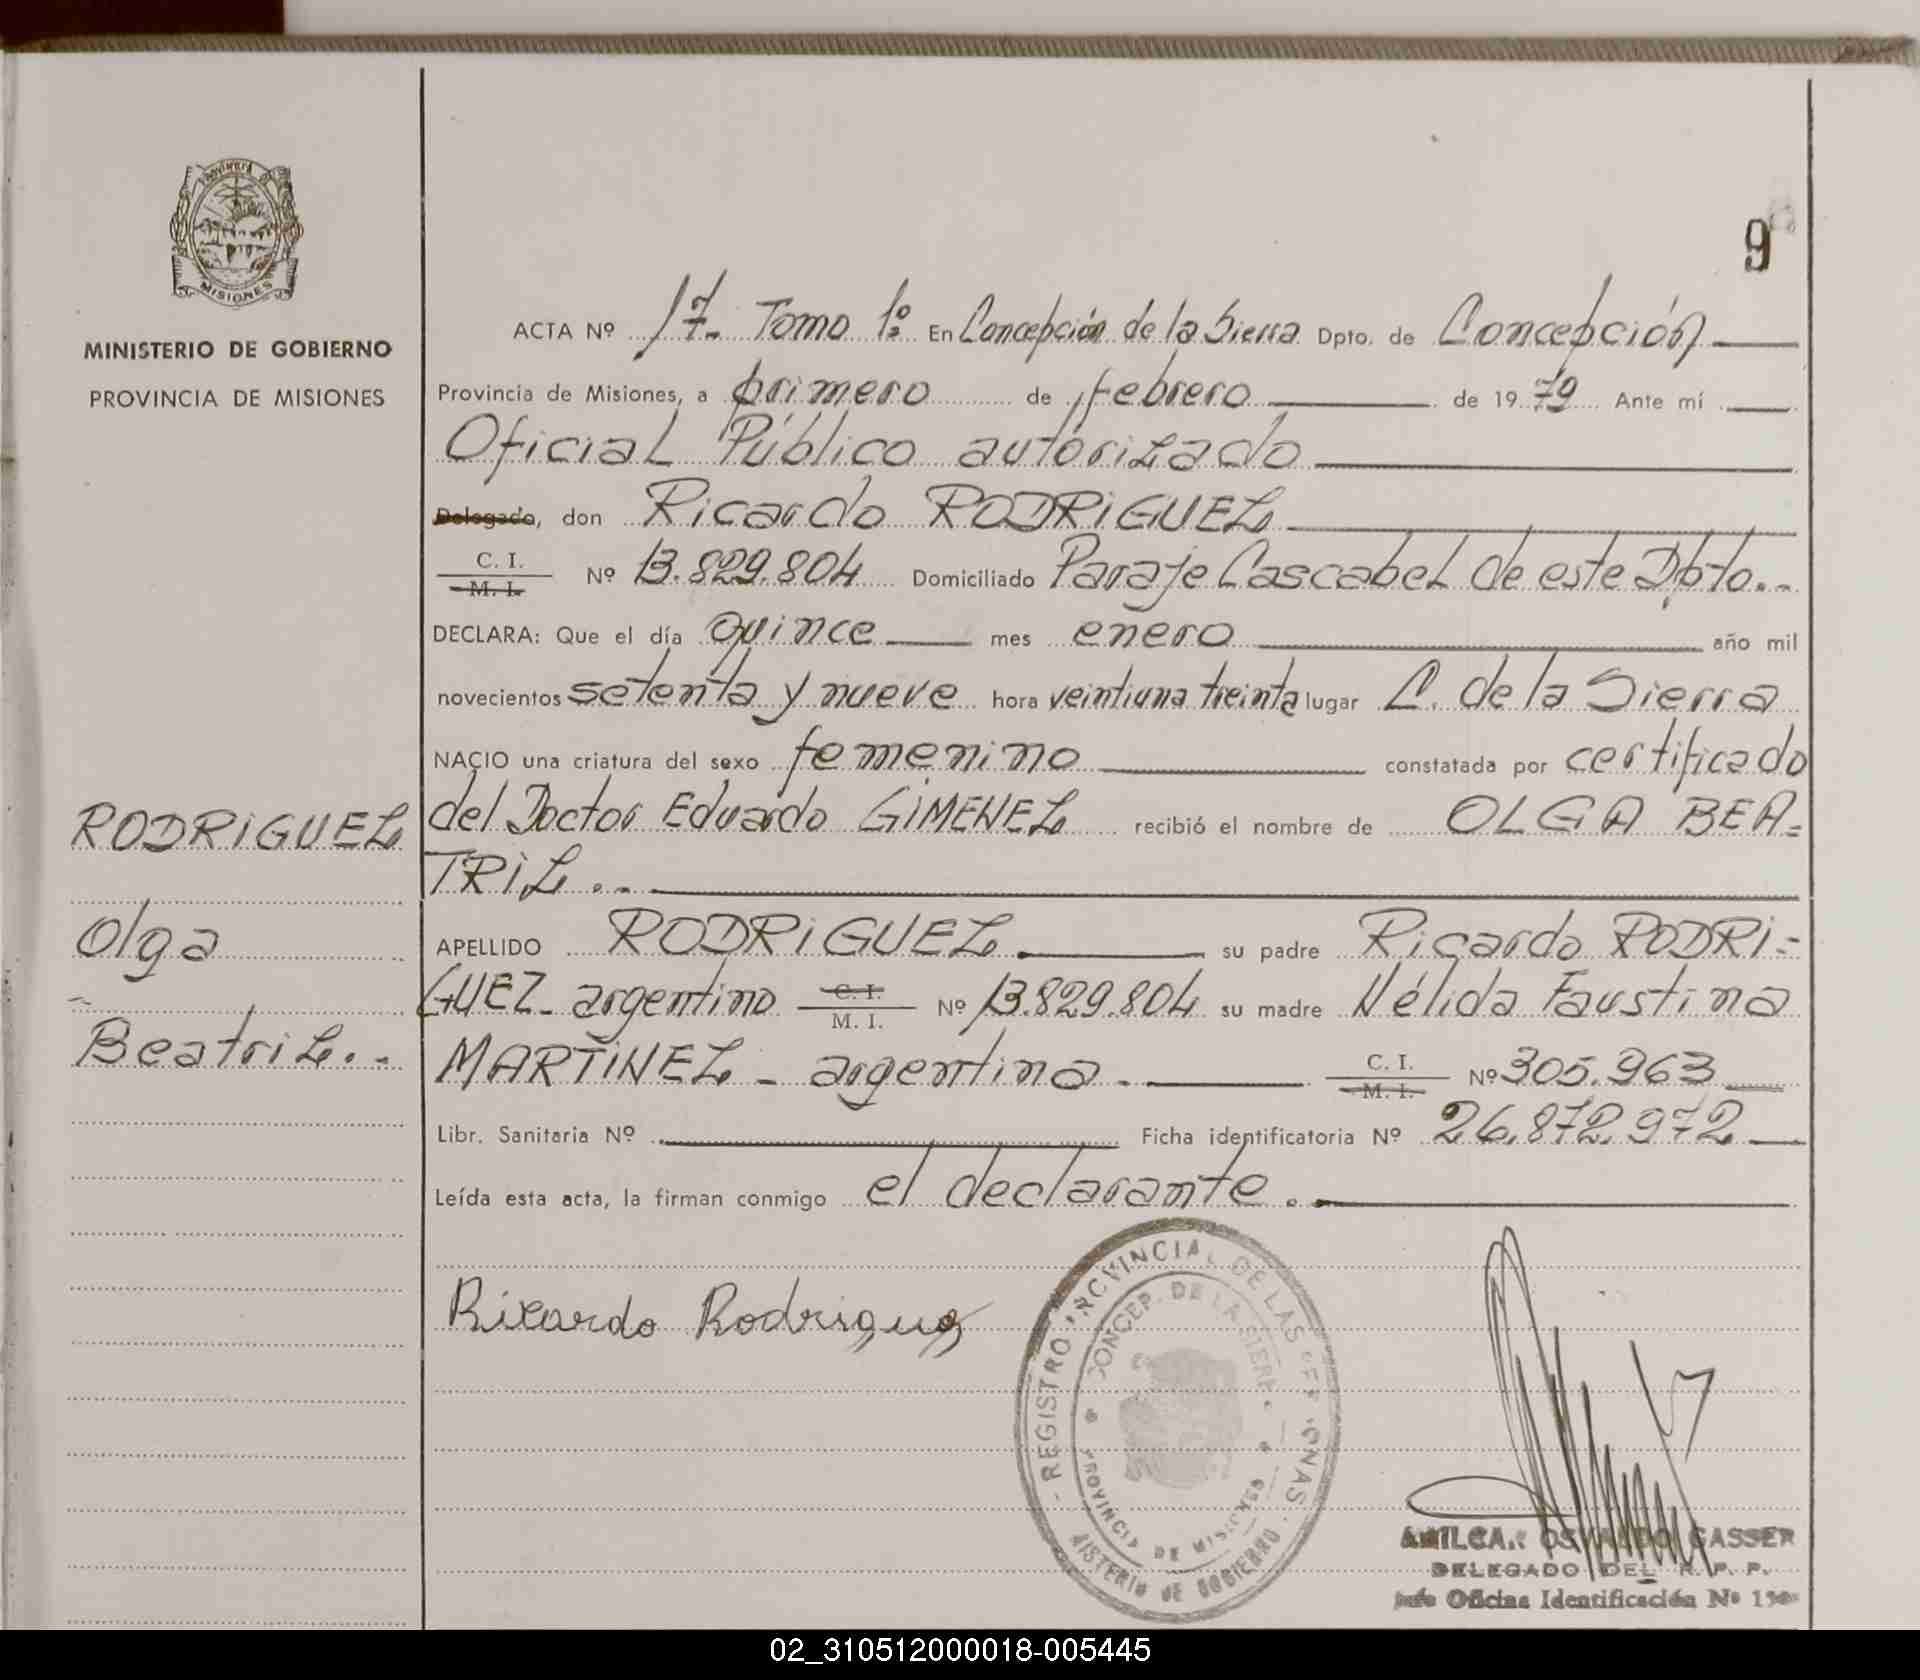 9
MISIONES
MINISTERIO DE GOBIERNO
PROVINCIA DE MISIONES
RODRIGUEZ
Olga
Beatriz.-
ACTA Nº 17. Tomo 1º En Concepción de la Sierra Dpto. de Concepción
Provincia de Misiones, a primero de febrero de 1979 Ante mí
Oficial Público autorizado
Delegado, don Ricardo RODRIGUEZ
C. I.
M. I. Nº 13.829.804 Domiciliado Paraje Cascabel de este Dpto.-
DECLARA: Que el día quince mes enero año mil
novecientos setenta y nueve hora veintiuna treinta lugar C. de la Sierra
NACIO una criatura del sexo femenino constatada por certificado
del Doctor Eduardo GIMENEZ recibió el nombre de OLGA BEA=
TRIZ.-
APELLIDO RODRIGUEZ. su padre Ricardo RODRI=
GUEZ- argentino C. I. M. I. Nº 13.829.804 su madre Nélida Faustina
MARTINEZ - argentina. C. I. M. I. Nº 305.963
Libr. Sanitaria Nº Ficha identificatoria Nº 26.872.972
Leída esta acta, la firman conmigo el declarante.
Ricardo Rodriguez
REGISTRO PROVINCIAL DE LAS PERSONAS
CONCEP. DE LA SIERRA
PROVINCIA DE MISIONES
MINISTERIO DE GOBIERNO
AMILCAR OSVALDO GASSER
DELEGADO DEL R. P. P.
Jefe Oficina Identificación Nº
02_310512000018-005445